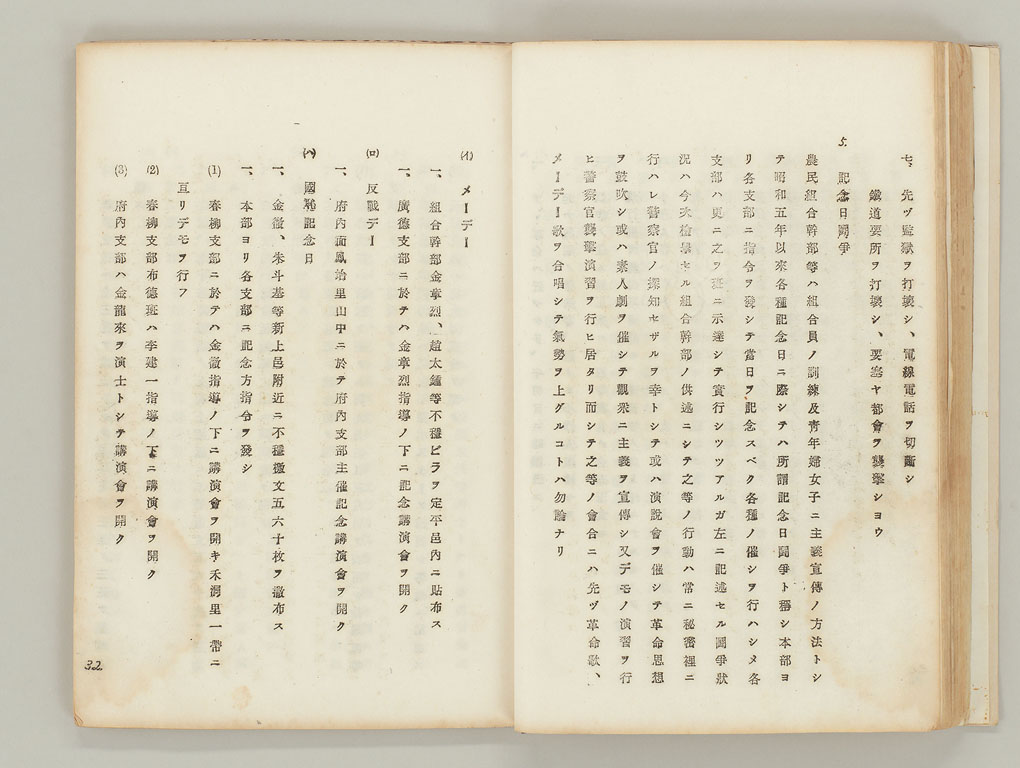 七、先ヅ監獄ヲ打壊シ、電線電話ヲ切斷シ
鐵道要所ヲ打壊シ、要塞ヤ都會ヲ襲撃シヨウ
5. 記念日鬪爭
農民組合幹部等ハ組合員ノ訓練及青年婦女子ニ主義宣傳ノ方法トシ
テ昭和五年以來各種記念日ニ際シテハ所謂記念日鬪爭ト稱シ本部ヨ
リ各支部ニ指令ヲ發シテ當日ヲ記念スベク各種ノ催シヲ行ハシメ各
支部ハ更ニ之ヲ班ニ示達シテ實行シツツアルガ左ニ記述セル鬪爭狀
況ハ今次檢擧セル組合幹部ノ供述ニシテ之等ノ行動ハ常ニ秘密裡ニ
行ハレ警察官ノ探知セザルヲ幸トシテ或ハ演說會ヲ催シテ革命思想
ヲ鼓吹シ或ハ素人劇ヲ催シテ觀衆ニ主義ヲ宣傳シ又デモノ演習ヲ行
ヒ警察官襲撃演習ヲ行ヒ居タリ而シテ之等ノ會合ニハ先ヅ革命歌、
メーデー歌ヲ合唱シテ氣勢ヲ上グルコトハ勿論ナリ
(イ) メーデー
一、組合幹部金章烈、趙太鍾等不穩ビラヲ定平邑內ニ貼布ス
一、廣德支部ニ於テハ金章烈指導ノ下ニ記念講演會ヲ開ク
(ロ) 反戰デー
一、府內面鳳治里山中ニ於テ府內支部主催記念講演會ヲ開ク
(ハ) 國恥記念日
一、金徵、朱斗基等新上邑附近ニ不穩檄文五六十枚ヲ撒布ス
一、本部ヨリ各支部ニ記念方指令ヲ發シ
(1) 春柳支部ニ於テハ金徵指導ノ下ニ講演會ヲ開キ禾洞里一帶ニ
亘リデモヲ行フ
(2) 春柳支部布德班ハ李建一指導ノ下ニ講演會ヲ開ク
(3) 府內支部ハ金龍來ヲ演士トシテ講演會ヲ開ク
32